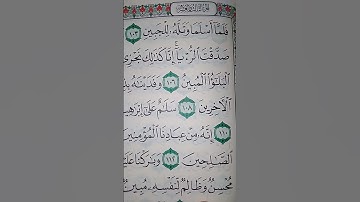 فَلَمَّآ أَسْلَمَا وَتَلَّهُۥ لِلْجَبِينِ ١٠٣
صَدَّقْتَ ٱلرُّءْيَآ إِنَّا كَذَٰلِكَ نَجْزِى
ٱلْبَلَٰٓؤُا۟ ٱلْمُبِينُ ١٠٦ وَفَدَيْنَٰهُ بِذِ
ٱلْءَاخِرِينَ ١٠٨ سَلَٰمٌ عَلَىٰٓ إِبْرَٰهِي
١١٠ إِنَّهُۥ مِنْ عِبَادِنَا ٱلْمُؤْمِنِينَ
ٱلصَّٰلِحِينَ ١١٢ وَبَٰرَكْنَا عَلَيْ
مُحْسِنٌ وَظَالِمٌ لِّنَفْسِهِۦ مُبِينٌ